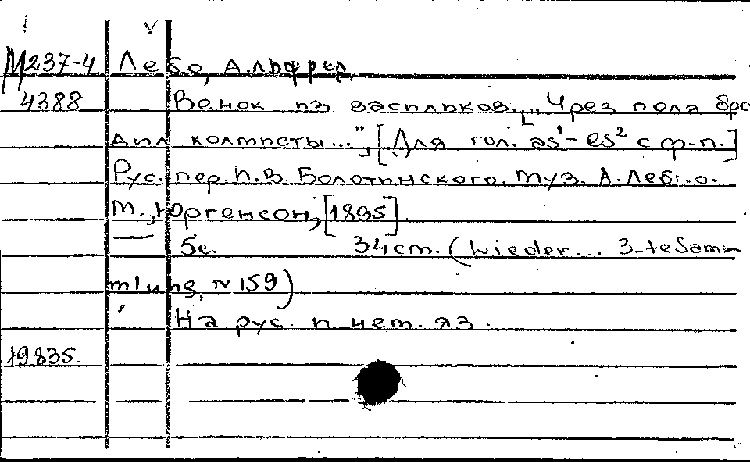 М237-4 Лебо, Альфред
4388 Венок из васильков. „Через поля бро
дил колтисты...", [Для гол. as¹-es² с ф-п.]
Рус. пер. П.В. Болотинского. Муз. А. Лебо.
М., Юргенсон, [1895].
5с. 34cm. (Lieder... 3-te Sam-
mlung, № 159)
На рус. и нем. яз.
19835.